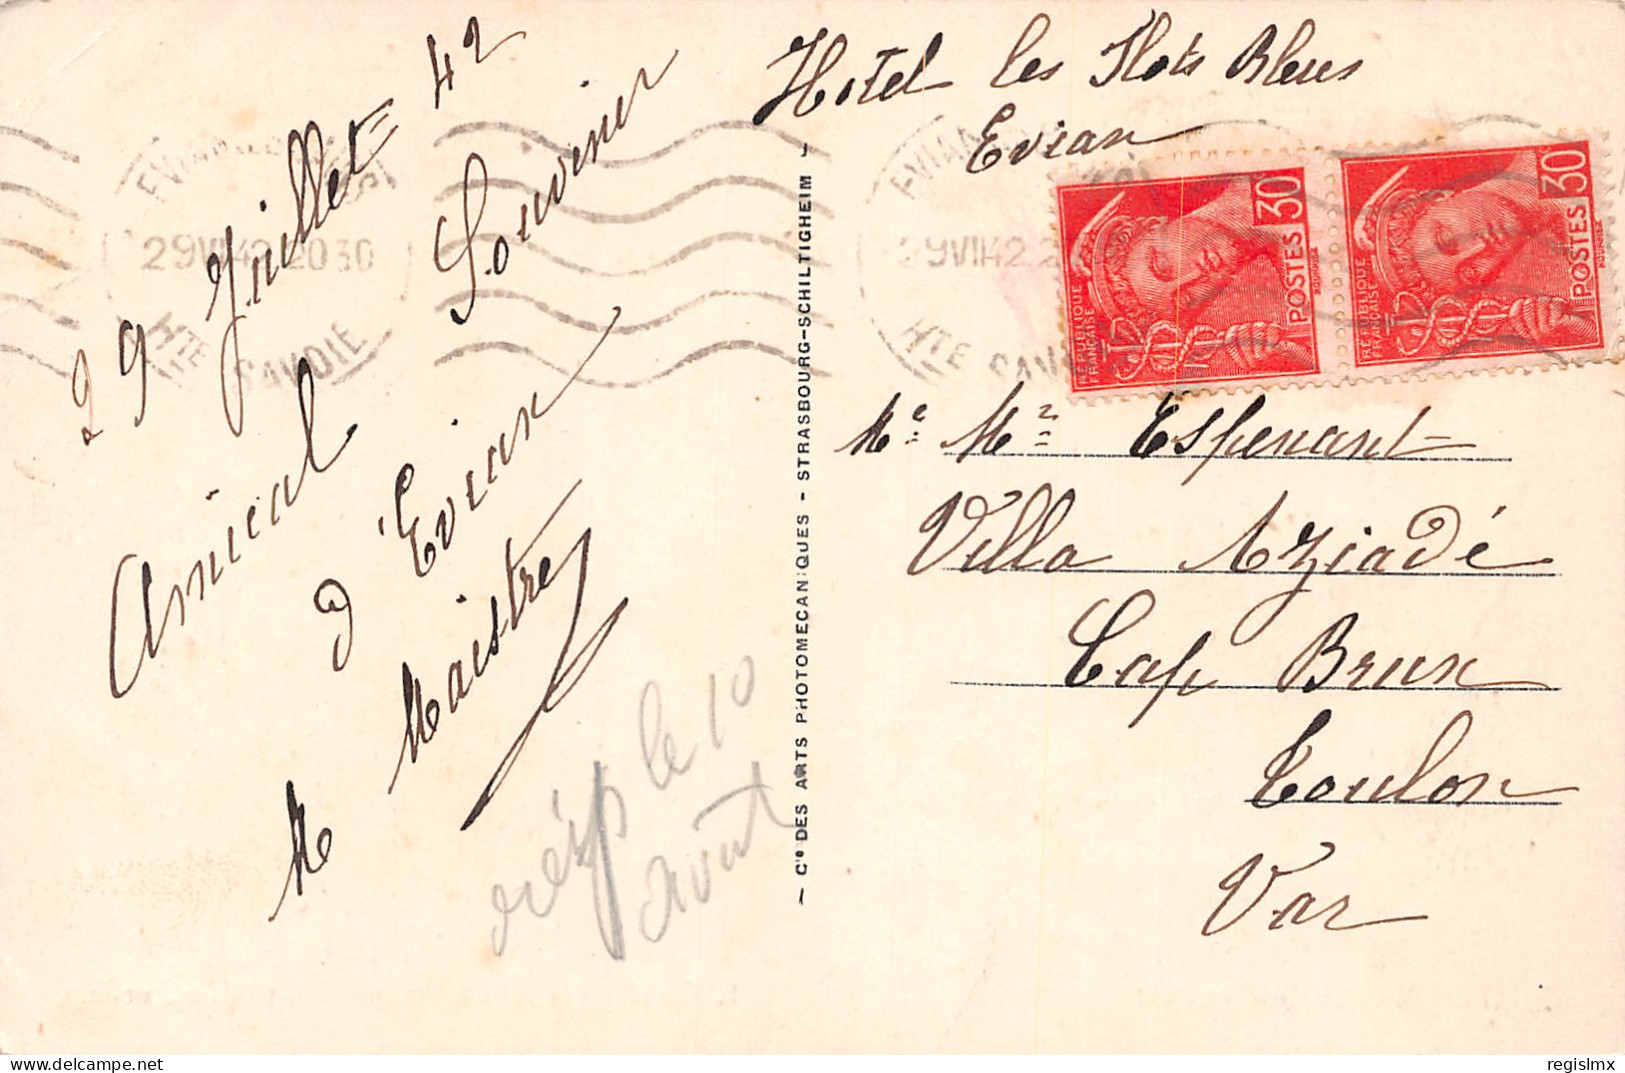 29 Juillet 42
Amical Souvenir
d'Evian
M Maistre
résp le 10
août
Hotel les Flots Bleus
Evian
EVIAN
29 VII 42 20 30
HTE SAVOIE
EVIAN
29 VII 42 2
HTE SAVOIE
30
POSTES
REPUBLIQUE
FRANÇAISE
30
POSTES
REPUBLIQUE
FRANÇAISE
— Cie DES ARTS PHOTOMECANIQUES - STRASBOURG-SCHILTIGHEIM —
Me Mr Espenant
Villa Aziadé
Cap Brun
Toulon
Var
regislmx